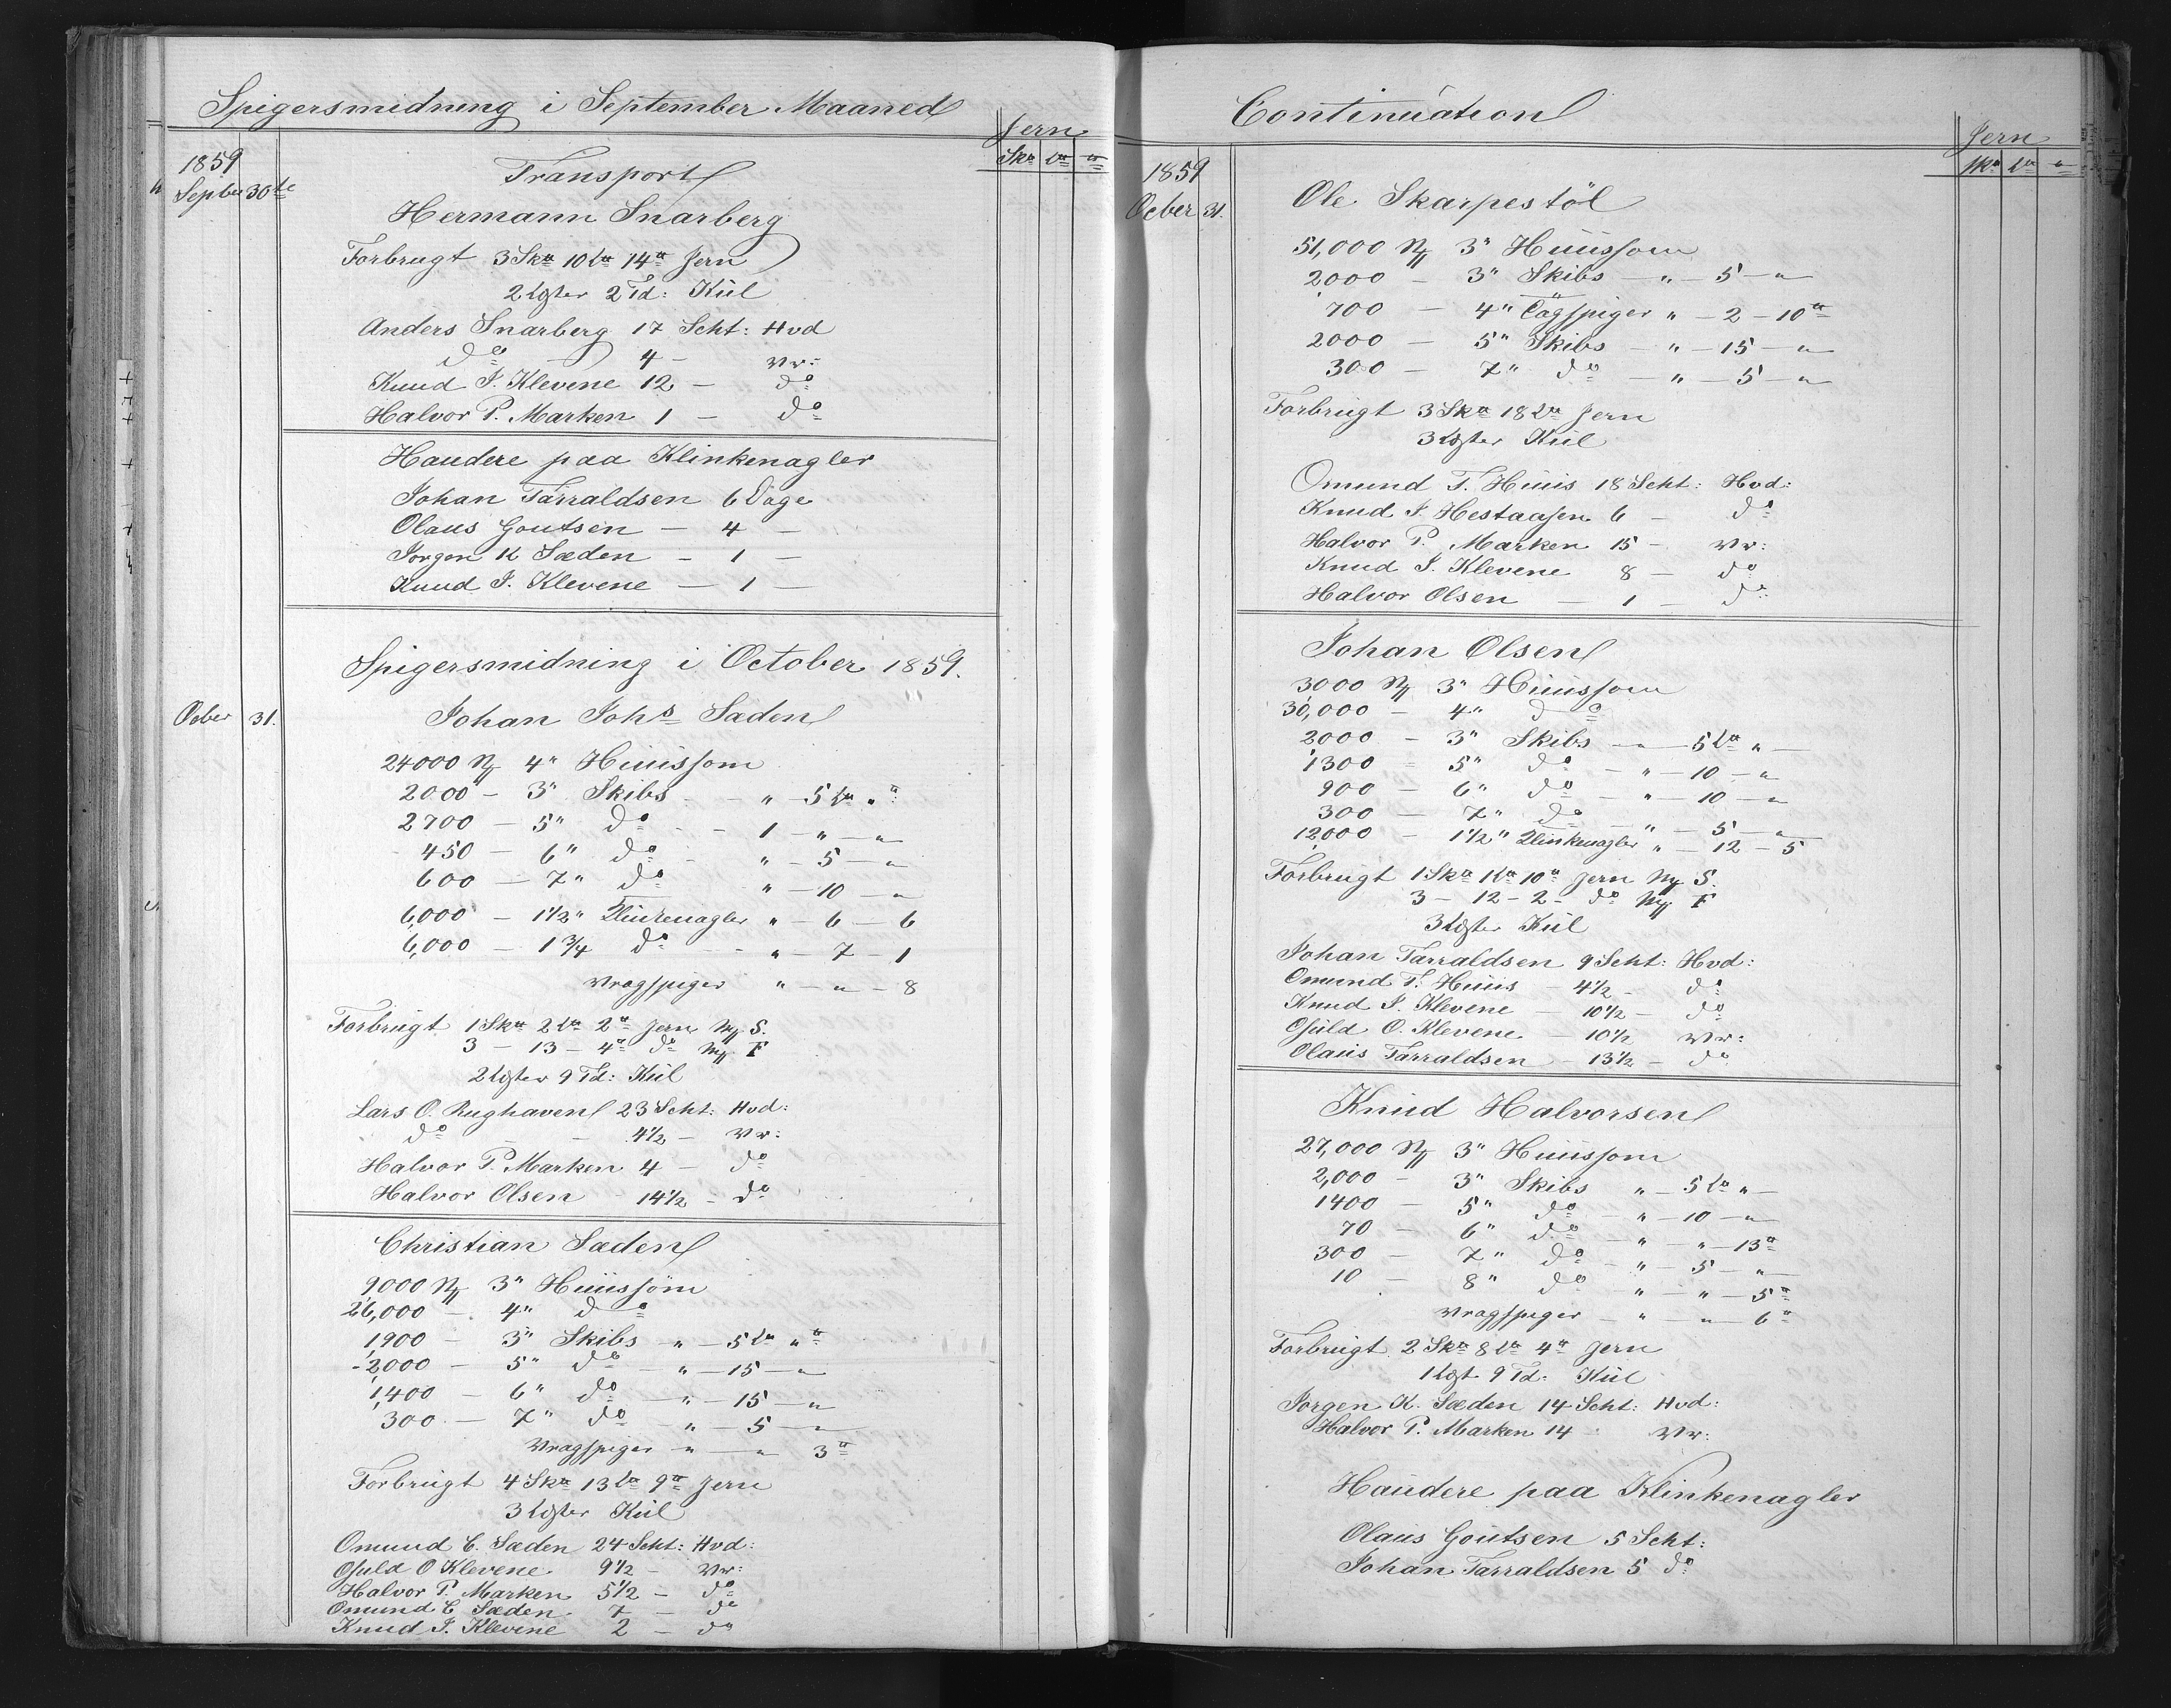 Spigersmidning i September Maaned
Jern
Sk℔ L℔ ℔
1859
Septbr 30te
Transport
Hermann Snarberg
Forbrugt 3 Sk℔ 10 L℔ 14 ℔ Jern
2 Lgster 2 Td: Kül
Anders Snarberg 17 Scht: Hvd
do — 4 — Vr:
Knud J. Klevene 12 — do
Halvor P. Marken 1 — do
Haudere paa Klinkenagler
Johan Tarraldsen 6 Dage
Olaus Goutsen — 4 —
Jorgen K Sæden — 1 —
Knud J. Klevene — 1 —
Spigersmidning i October 1859.
Ocber 31.
Johan Johs Sæden
24000 N 4" Hüüssom
2000 — 3" Skibs — " — 5 L℔ " ℔
2700 — 5" do — 1 — " — "
450 — 6" do — " — 5 — "
600 — 7" do " — 10 — "
6,000 — 1 1/2" Klinkenagler " — 6 — 6
6,000 — 1 3/4 do — " — 7 — 1
Vragspiger " — " — 8
Forbrugt 1 Sk℔ 2 L℔ 2 ℔ Jern My S.
3 — 13 — 4 ℔ do My F
2 Lgster 9 Td: Kül
Lars O. Rughaven 23 Scht: Hvd:
do — — 4 1/2 — Vr:
Halvor P. Marken 4 — do
Halvor Olsen 14 1/2 — do
Christian Sæden
9000 N 3" Hüüssöm
26,000 — 4" do
1,900 — 3" Skibs — " — 5 L℔ " ℔
2,000 — 5" do — " — 15 — "
1,400 — 6" do — " — 15 — "
300 — 7" do — " — 5 — "
Vragspiger " — " 3 ℔
Forbrugt 4 Sk℔ 13 L℔ 9 ℔ Jern
3 Lgster Kül
Omund C. Sæden 24 Scht: Hvd:
Osuld O Klevene 9 1/2 — Vr:
Halvor P. Marken 5 1/2 — do
Omund C Sæden 7 — do
Knud J. Klevene 2 — do
Continuation
Jern
Sk℔ L℔ ℔
1859
Ocber 31.
Ole Skarpestöl
51,000 N 3" Hüüssom
2000 — 3" Skibs — " — 5 — "
700 — 4" Tögspiger " — 2 — 10 ℔
2000 — 5" Skibs — " — 15 — "
300 — 7" do — " — 5 — "
Forbrugt 3 Sk℔ 18 L℔ Jern
3 Lgster Kül
Omund T. Hüüs 18 Scht: Hvd:
Knud J. Hestaasen 6 — do
Halvor P. Marken 15 — Vr:
Knud J. Klevene 8 — do
Halvor Olsen — 1 — do
Johan Olsen
3000 N 3" Hüüssom
30,000 — 4" do
2000 — 3" Skibs — " — 5 L℔ " —
1300 — 5" do — " — 10 — "
900 — 6" do — " — 10 — "
300 — 7" do — " — 5 — "
12,000 — 1 1/2" Klinkenagler " — 12 — 5
Forbrugt 1 Sk℔ 1 L℔ 10 ℔ Jern My S.
3 — 12 — 2 — do My F
3 Lgster Kül
Johan Tarraldsen 9 Scht: Hvd:
Omund T. Hüüs — 4 1/2 — do
Knud J. Klevene — 10 1/2 — do
Osuld O. Klevene — 10 1/2 Vr:
Olaüs Tarraldsen — 13 1/2 — do
Knüd Halvorsen
27,000 N 3" Hüüssom
2,000 — 3" Skibs " — 5 L℔ " —
1400 — 5" do — " — 10 — "
70 — 6" do — " — " — 13 ℔
300 — 7" do — " — 5 — "
10 — 8" do — " — " — 5 ℔
Vragspiger — " — " — 6 ℔
Forbrugt 2 Sk℔ 8 L℔ 4 ℔ Jern
1 Lgst 9 Td: Kül
Jorgen K. Sæden 14 Scht: Hvd:
Halvor P. Marken 14 Vr:
Haüdere paa Klinkenagler
Olaüs Goütsen 5 Scht:
Johan Tarraldsen 5 do